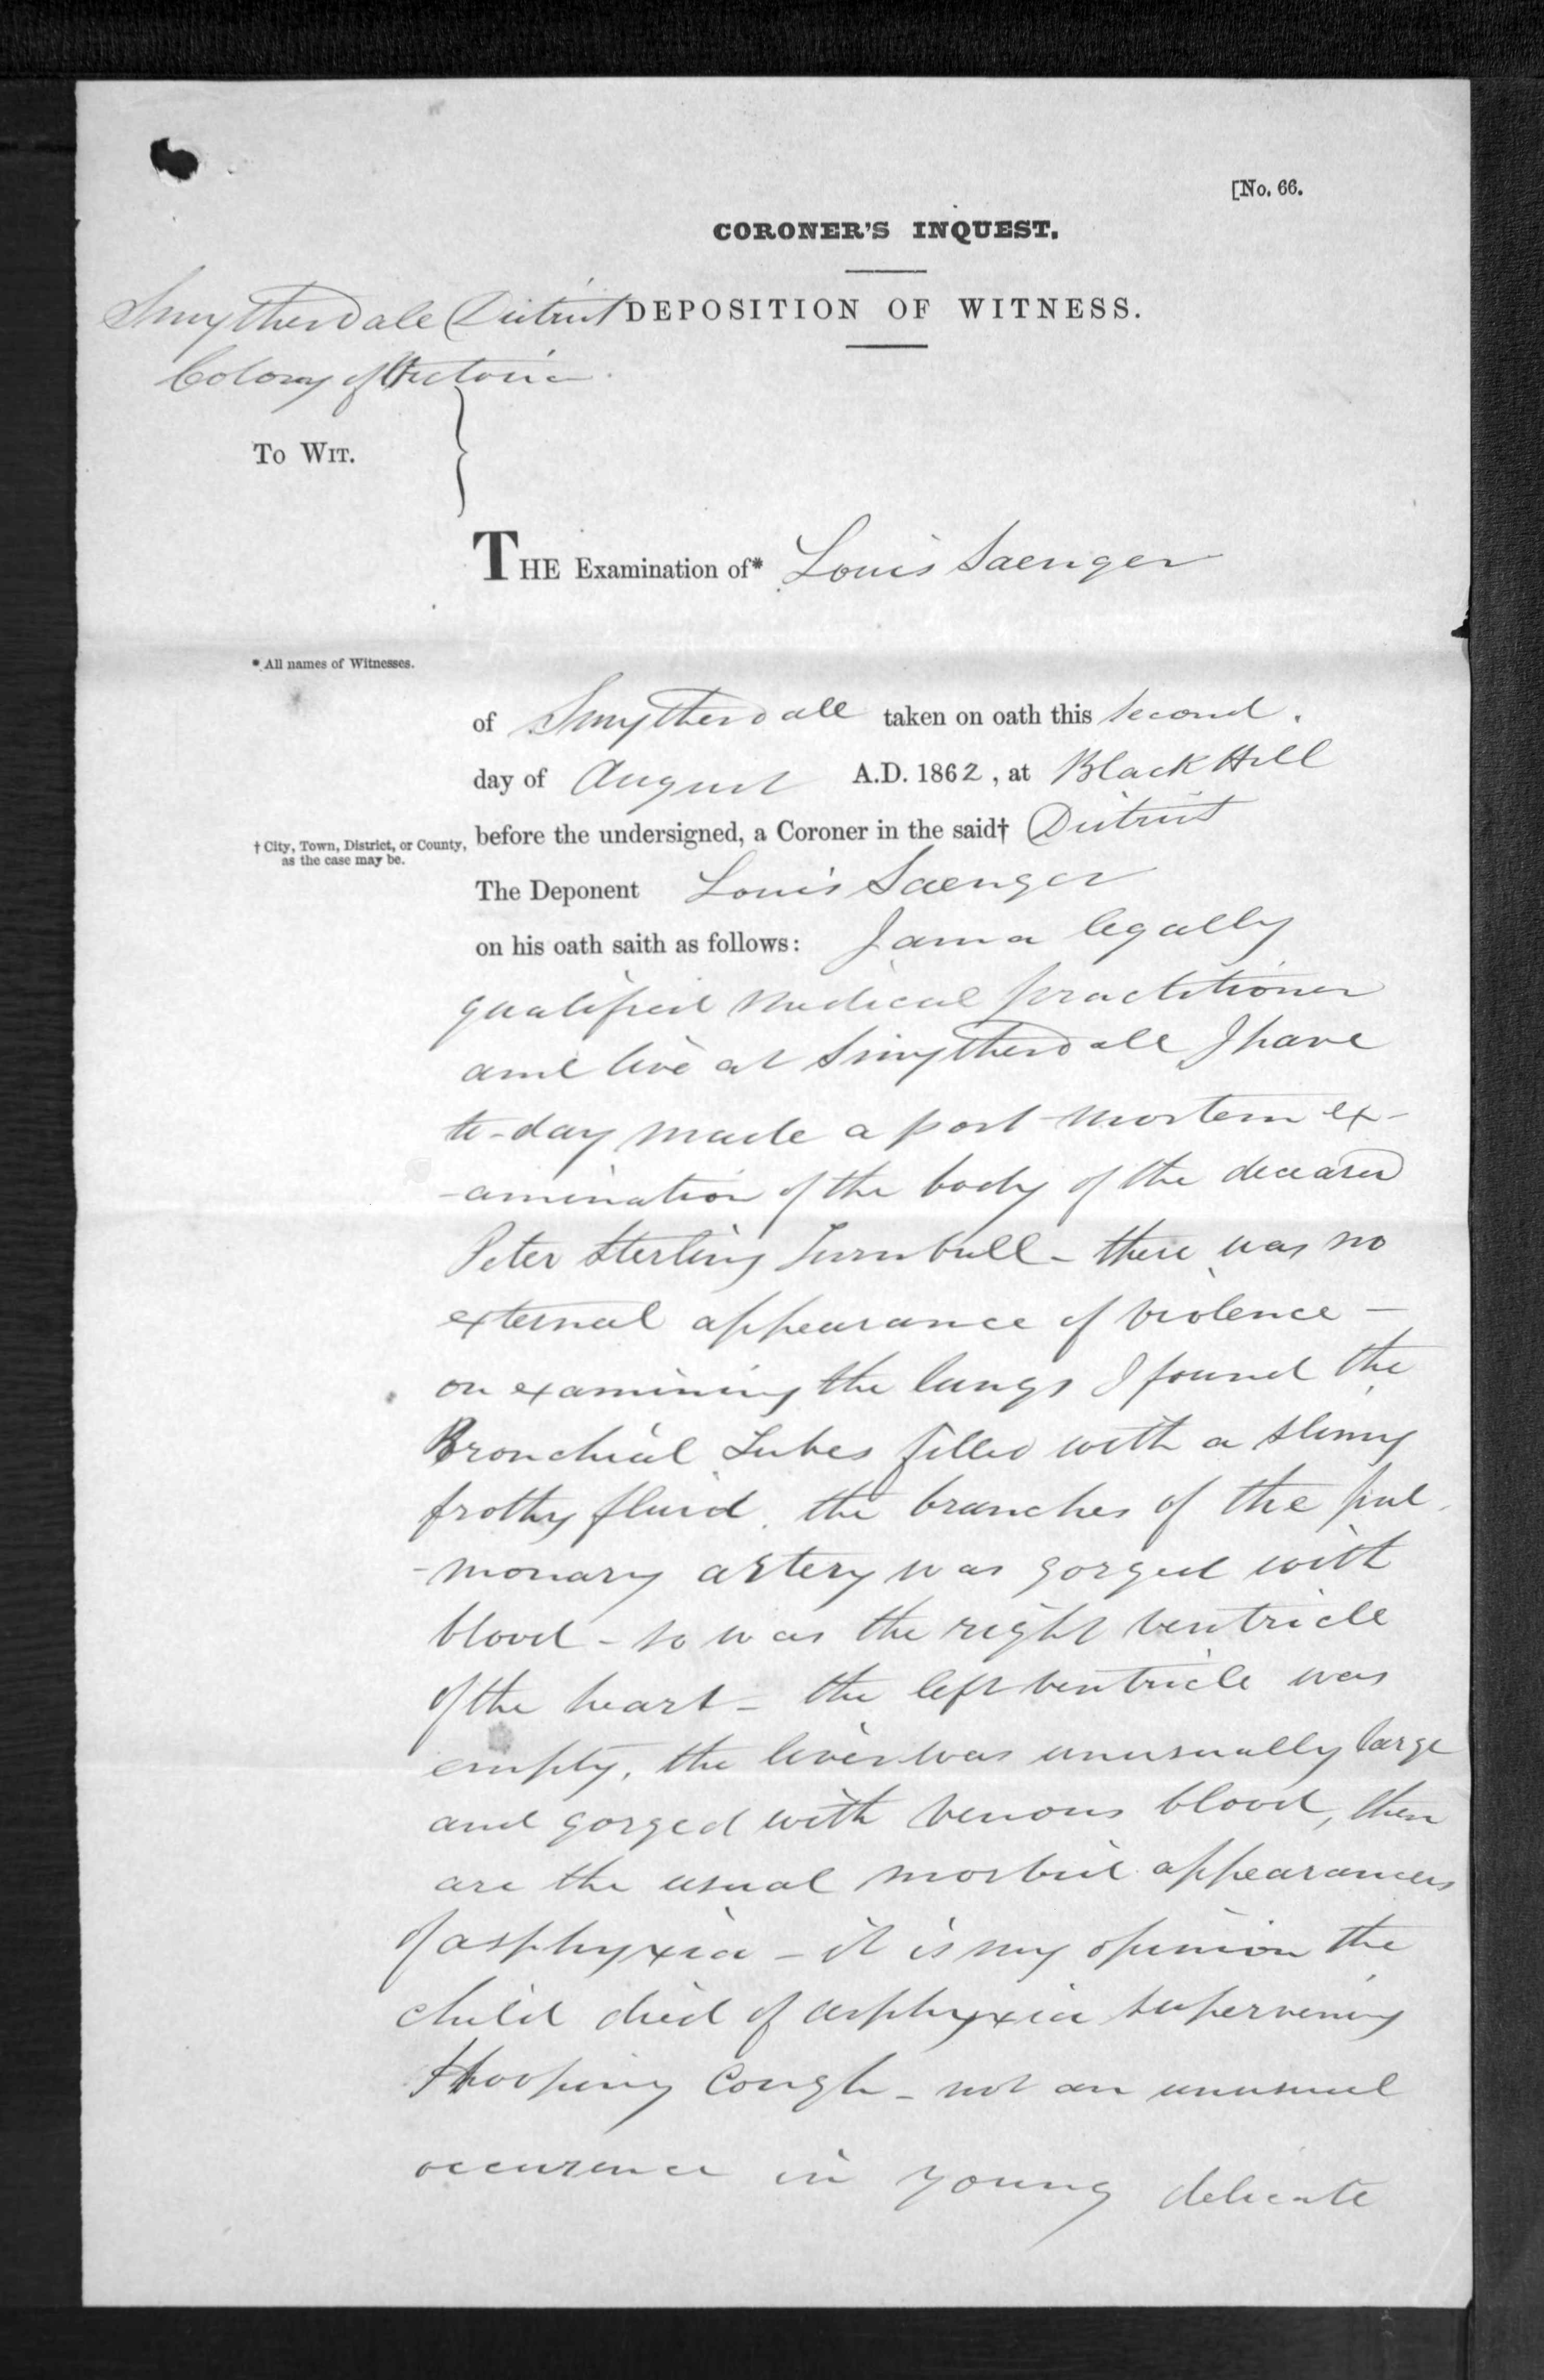 [No. 66.
CORONER'S INQUEST.
Smythesdale District DEPOSITION OF WITNESS.
Colony of Victoria
To Wit. }
THE Examination of* Louis Saenger
* All names of Witnesses.
of Smythesdale taken on oath this Second.
day of August A.D. 1862, at Black Hill
† City, Town, District, or County, as the case may be.
before the undersigned, a Coroner in the said† District
The Deponent Louis Saenger
on his oath saith as follows: I am a legally
qualified Medical practitioner
and live at Smythesdale I have
to-day made a post-mortem ex-
-amination of the body of the deceased
Peter Sterling Turnbull - there was no
external appearance of violence -
on examining the lungs I found the
Bronchial Tubes filled with a slimy
frothy fluid. the branches of the pul-
-monary artery was gorged with
blood - so was the right ventricle
of the heart - the left ventricle was
empty, the liver was unusually large
and gorged with venous blood, these
are the usual morbid appearances
of asphyxia - it is my opinion the
child died of asphyxia supervening
Hooping Cough - not an unusual
occurence in young delicate